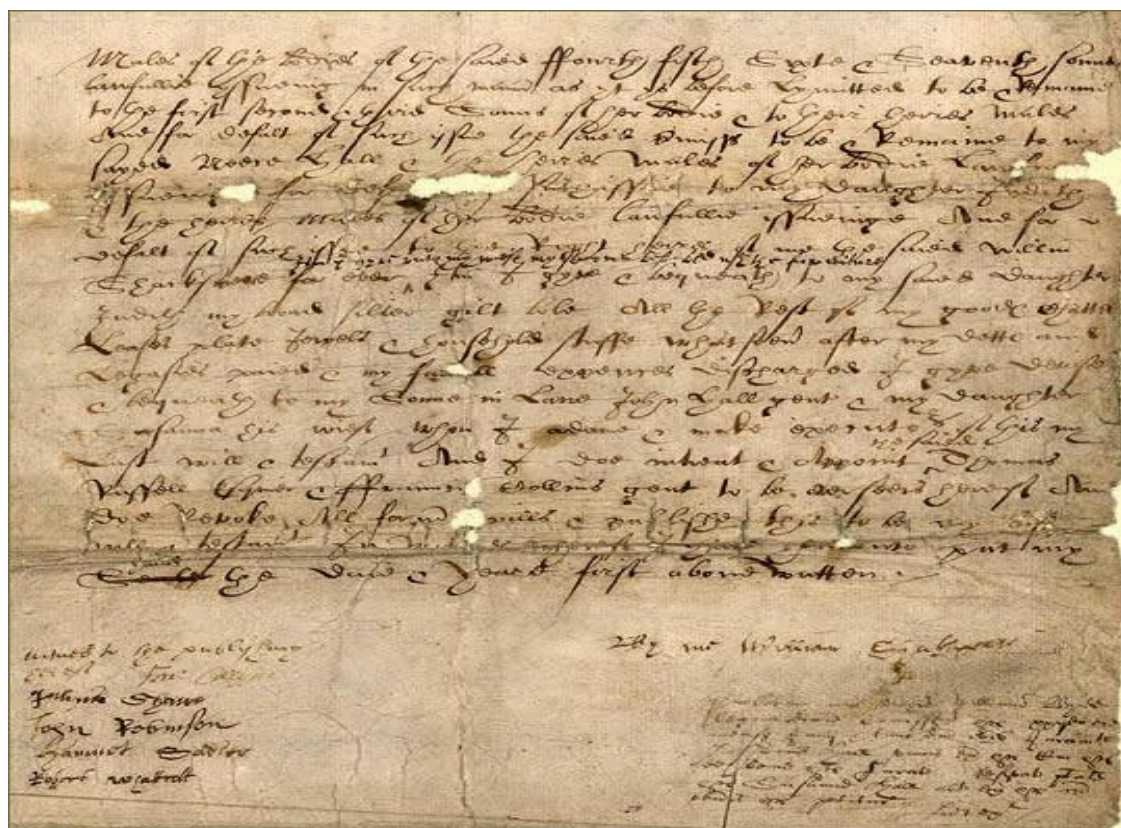 Males of the bodies of the saied ffourth fifth Sixte & Seaventh sonnes
lawfullie yssueing in such mann as yt ys before Lymitted to be & Remaine
to the first second & third Sonns of her bodie & to their heires Males
And for defalt of such issue the saied premiss to be & Remaine to my
sayed Neece Hall & the heires Males of her bodie
yssueing for to my daughter Judith
& the heires Males of her bodie lawfullie issueinge And for
defalt of such issue to the Right heires of me the saied Willm
Itm I gyve unto my wief my second best bed with the furniture
Shackspeare for ever Itm I gyve & bequeath to my saied daughter
Judith my broad silver gilt bole All the Rest of my goods Chattels
Leases plate Jewels & household stuffe whatsoev after my detts and
Legasies paied & my expences discharged I gyve devise
& bequeath to my Sonne in Lawe John Hall gent & my daughter
Susanna his wief whom I ordaine & make executors of this my
the saied
Last will & testamt And I doe intreat & Appoint Thomas
Russell Esquier & ffrauncis Collins gent to be overseers hereof And
doe Revoke All formr wills & publishe this to be my last
will & testamt In witnes whereof I hereunto put my
hand
Seale the daie & Yeare first above Written
By me William Shakspeare
witnes to the publishing
hereof Fra: Collyns
Julyus Shawe
John Robinson
Hamnet Sadler
Robert Whattcott